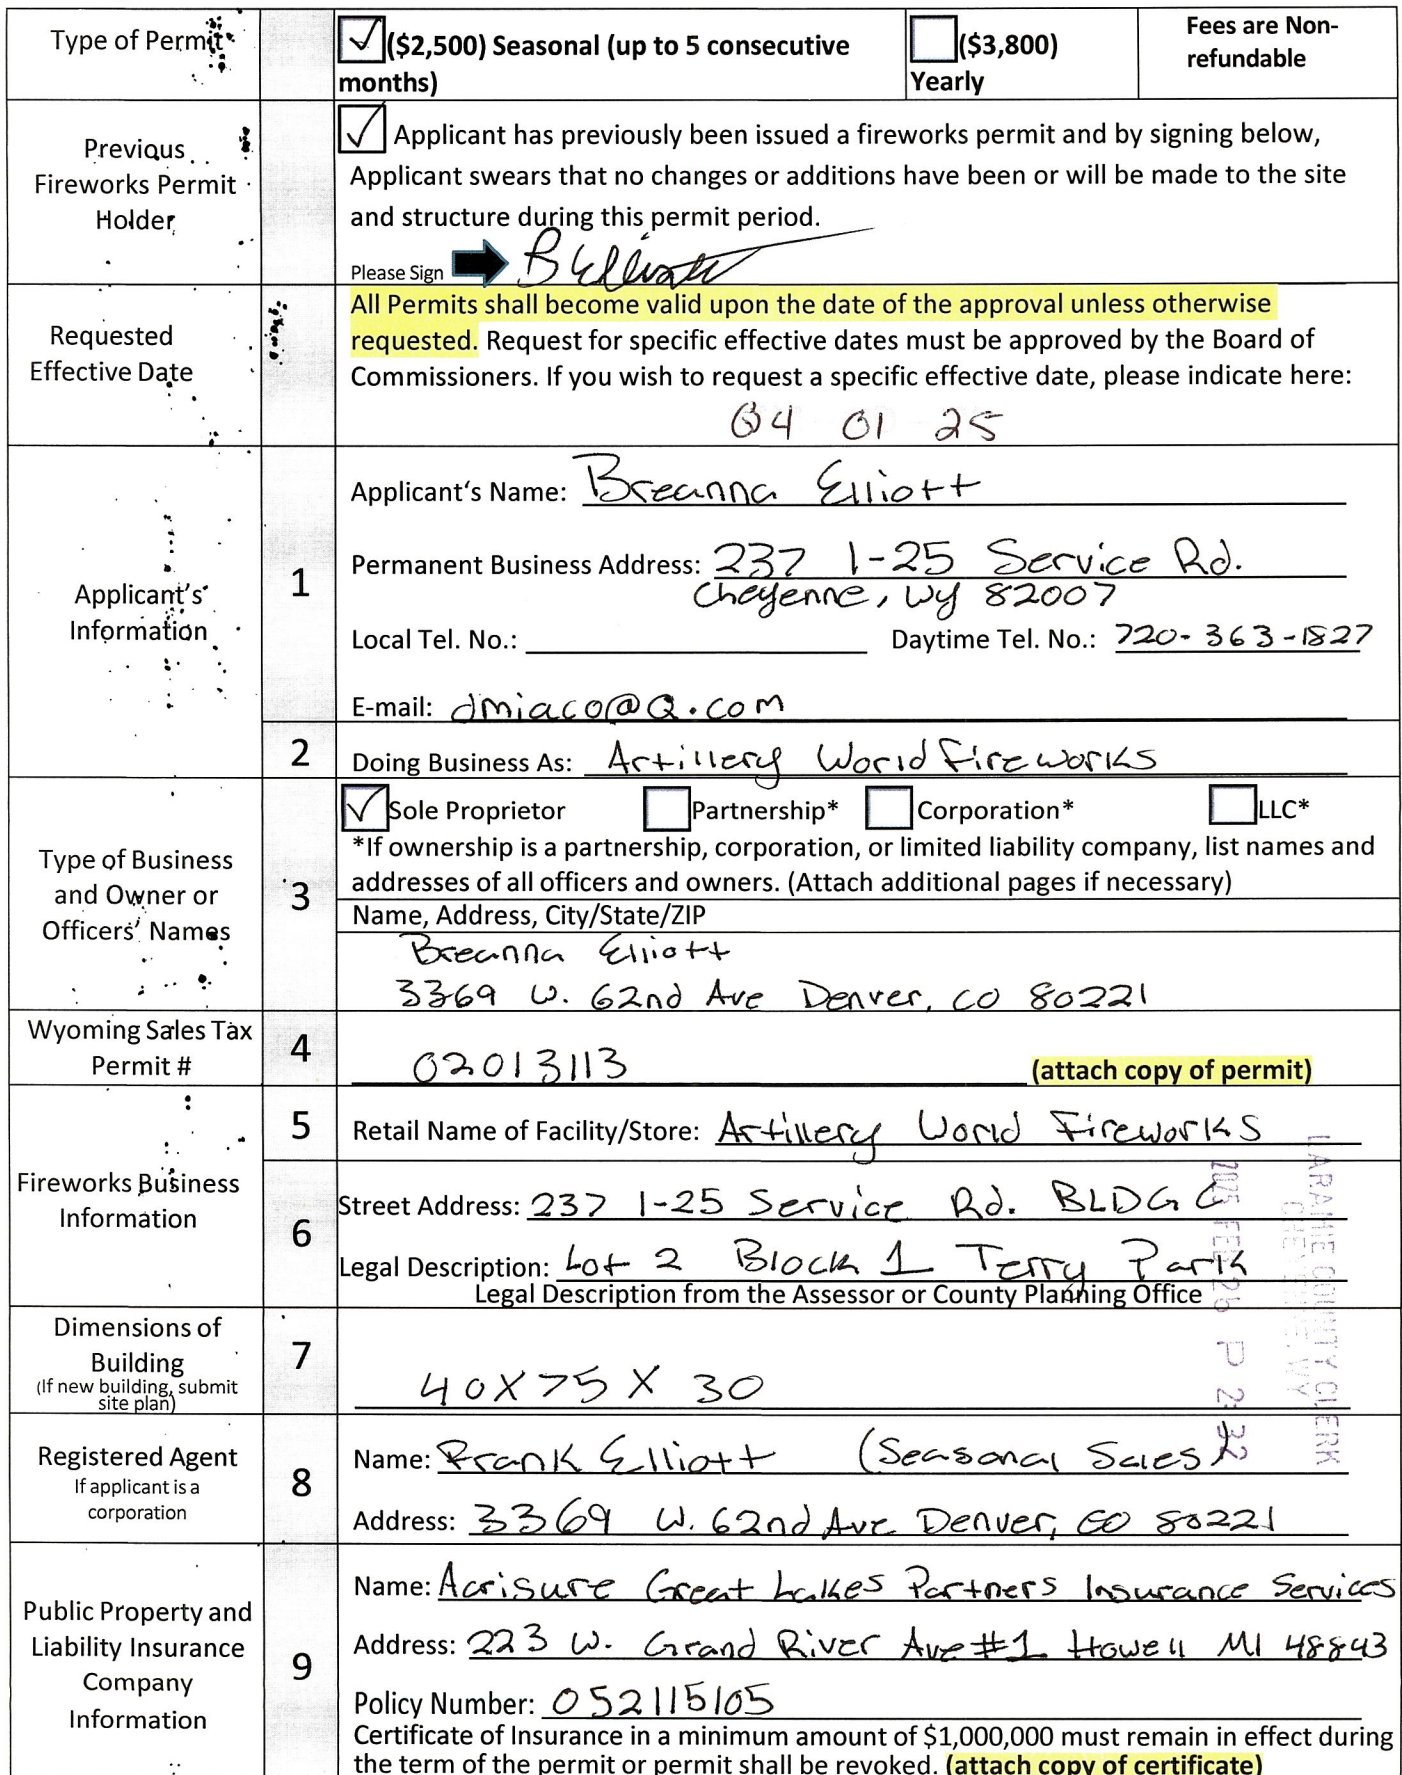 Type of Permit
✓ ($2,500) Seasonal (up to 5 consecutive
months)
($3,800)
Yearly
Fees are Non-
refundable
Previous
Fireworks Permit
Holder
✓ Applicant has previously been issued a fireworks permit and by signing below,
Applicant swears that no changes or additions have been or will be made to the site
and structure during this permit period.
Please Sign B Elliott
Requested
Effective Date
All Permits shall become valid upon the date of the approval unless otherwise
requested. Request for specific effective dates must be approved by the Board of
Commissioners. If you wish to request a specific effective date, please indicate here:
04 01 25
Applicant's
Information
1
Applicant's Name: Breanna Elliott
Permanent Business Address: 237 I-25 Service Rd.
Cheyenne, Wy 82007
Local Tel. No.: Daytime Tel. No.: 720-363-1827
E-mail: dmiaco@Q.com
2
Doing Business As: Artillery World Fireworks
Type of Business
and Owner or
Officers' Names
3
✓ Sole Proprietor Partnership* Corporation* LLC*
*If ownership is a partnership, corporation, or limited liability company, list names and
addresses of all officers and owners. (Attach additional pages if necessary)
Name, Address, City/State/ZIP
Breanna Elliott
3369 W. 62nd Ave Denver, CO 80221
Wyoming Sales Tax
Permit #
4
02013113 (attach copy of permit)
Fireworks Business
Information
5
Retail Name of Facility/Store: Artillery World Fireworks
6
Street Address: 237 I-25 Service Rd. BLDG C
Legal Description: Lot 2 Block 1 Terry Park
Legal Description from the Assessor or County Planning Office
LARAMIE COUNTY CLERK
CHEYENNE, WY
2025 FEB 26 P 2:32
Dimensions of
Building
(If new building, submit
site plan)
7
40X75X 30
Registered Agent
If applicant is a
corporation
8
Name: Frank Elliott (Seasonal Sales)
Address: 3369 W. 62nd Ave Denver, CO 80221
Public Property and
Liability Insurance
Company
Information
9
Name: Acrisure Great Lakes Partners Insurance Services
Address: 223 W. Grand River Ave #1 Howell MI 48843
Policy Number: 052115105
Certificate of Insurance in a minimum amount of $1,000,000 must remain in effect during
the term of the permit or permit shall be revoked. (attach copy of certificate)